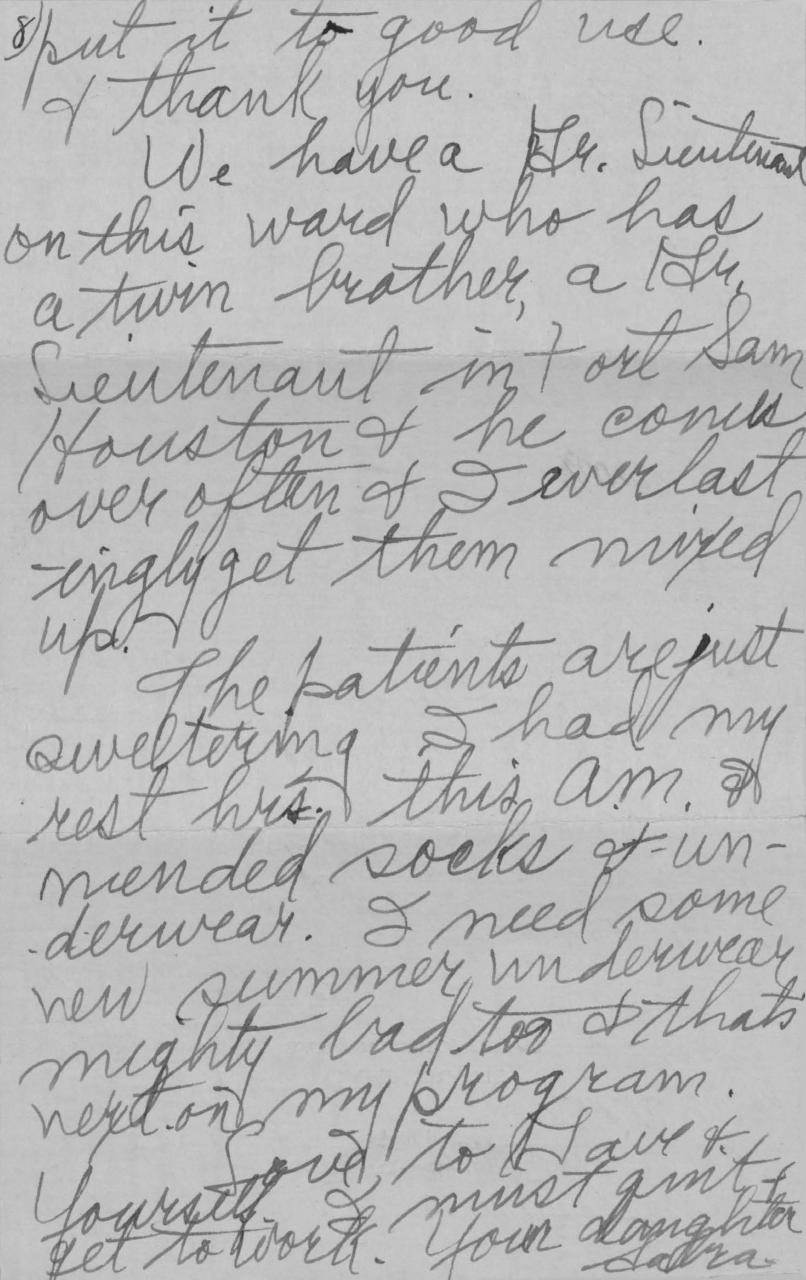 8) put it to good use.
& thank you.
We have a Jr. Lieutenant
on this ward who has
a twin brother, a Jr.
Lieutenant in Fort Sam
Houston & he comes
over often & I everlast
-ingly get them mixed
up.
The patients are just
sweltering I had my
rest hrs. this a.m. &
mended socks & un-
derwear. I need some
new summer underwear
mighty bad too & thats
next on my program.
Love to &
Yourself. I must quit &
get to work. Your daughter